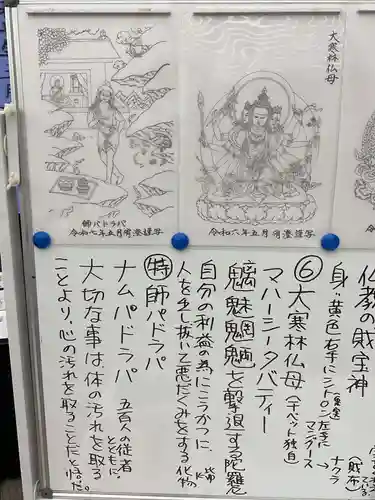 大寒林仏母
令和六年五月宥瀅謹写
師パドラパ
令和七年五月宥瀅謹写
仏教の財宝神
身:黄色 右手にシトロン 左手に
マングース
ナクラ
(財布)
⑥大寒林仏母
マハーシータバティー
(チベット独自)
魑魅魍魎を撃退する陀羅
自分の利益の為にこうかつに、
人を出し抜いて悪だくみをする化物
㊕師パドラパ
ナムパドラパ 五百人の従者
とともに。
大切な事は、体の汚れを取る
ことより、心の汚れを取ることだと悟った。